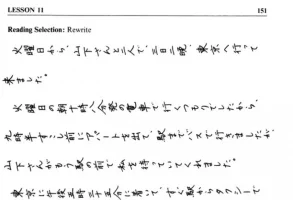 LESSON 11 151
Reading Selection: Rewrite
火曜日から、山下さんと二人で、三日三晩、東京へ行って
来ました。
火曜日の朝十時八分発の電車で行くつもりでしたから、
九時半すこし前にアパートを出て、駅までバスで行きましたが、
山下さんがもう駅の前で私を待っていてくれました。
東京に午後五時三十五分に着いて、すぐ駅からタクシーで